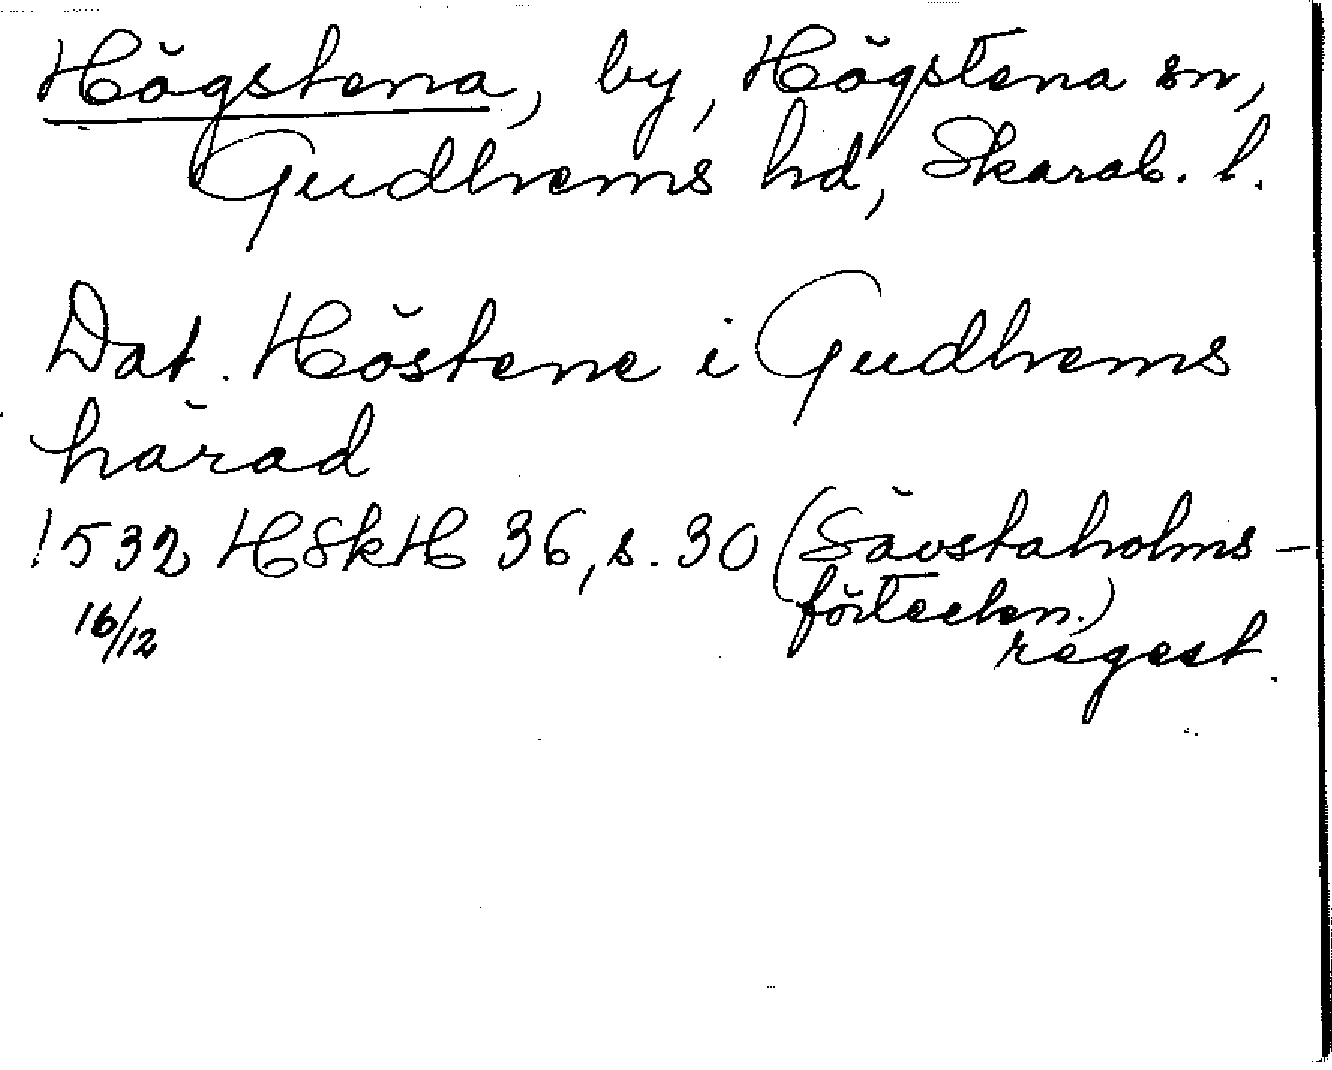 Högstena, by, Högstena sn,
Gudhems hd, Skarab. l.
Dat. Höstene i Gudhems
härad
1532 HSkH 36, s. 30 (Sävstaholms-
förteckn.)
16/12
regest.